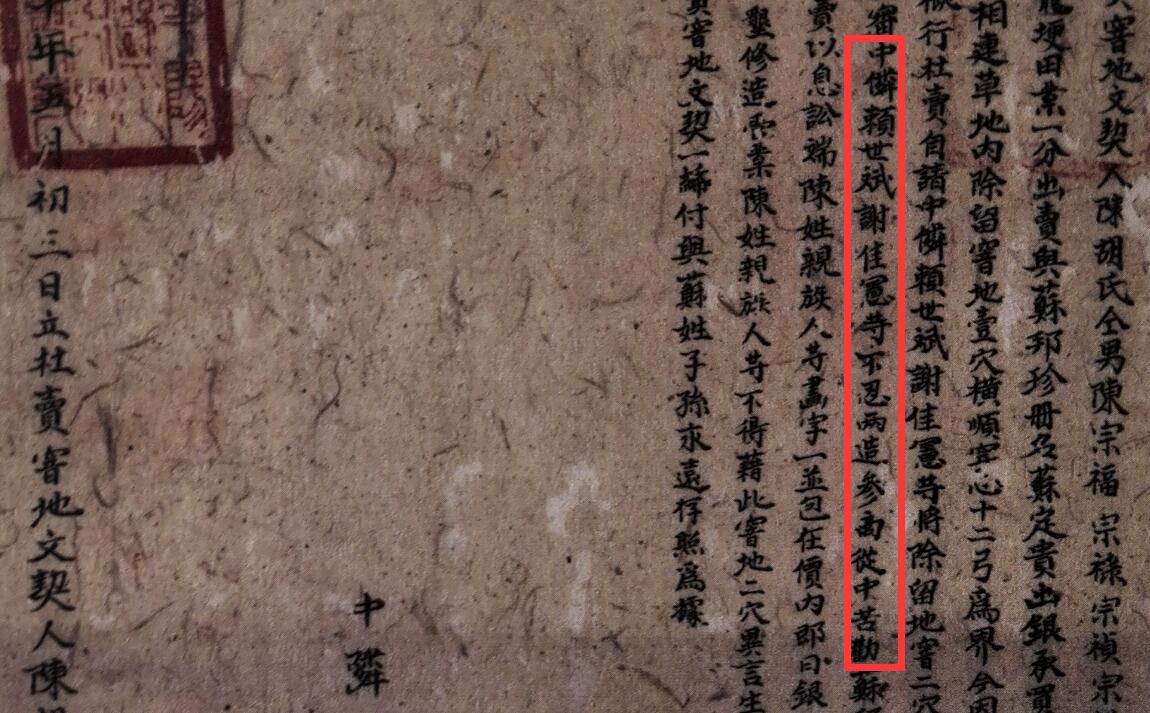 窨地文契人陳胡氏仝男陳宗福宗祿宗禎宗
埂田業一分出賣與蘇邦珍冊名蘇定貴出銀承買
相連草地内除留窨地壹穴橫順穿心十二弓爲界今因
行杜賣自請中隣賴世斌謝佳憲䓁將除留地窨二穴
窨中隣賴世斌謝佳憲䓁不忍兩造參商從中苦勸蘇
賣以息訟端陳姓親族人䓁畫字一並包在價内即日銀
墾修造爲業陳姓親族人䓁不得藉此窨地二穴異言生
窨地文契一紙付與蘇姓子孫永遠存照爲據
中隣
年五月初三日立杜賣窨地文契人陳